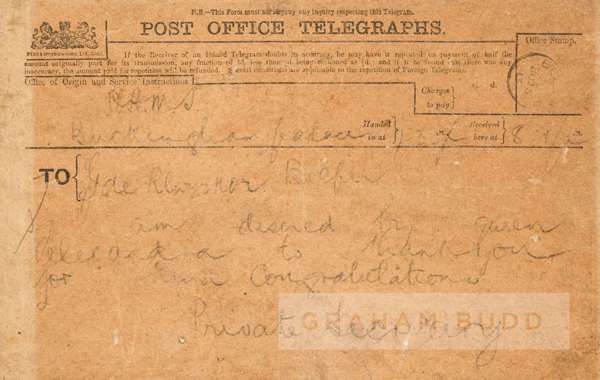 N.B.—This Form must accompany any inquiry respecting this Telegram.
POST OFFICE TELEGRAPHS.
If the Receiver of an Inland Telegram doubts its accuracy, he may have it repeated on payment of half the
amount originally paid for its transmission, any fraction of 1d. less than ½d. being reckoned as ½d.; and if it be found that there was any
inaccuracy, the amount paid for repetition will be refunded. Special conditions are applicable to the repetition of Foreign Telegrams.
Office of Origin and Service Instructions.
Office Stamp.
Charges to pay
s. d.
O.H.M.S
Buckingham palace
Handed in at
Received here at
TO
I am desired by queen
Alexandra to thank you
for your Congratulations
Private Secretary
GRAHAM BUDD